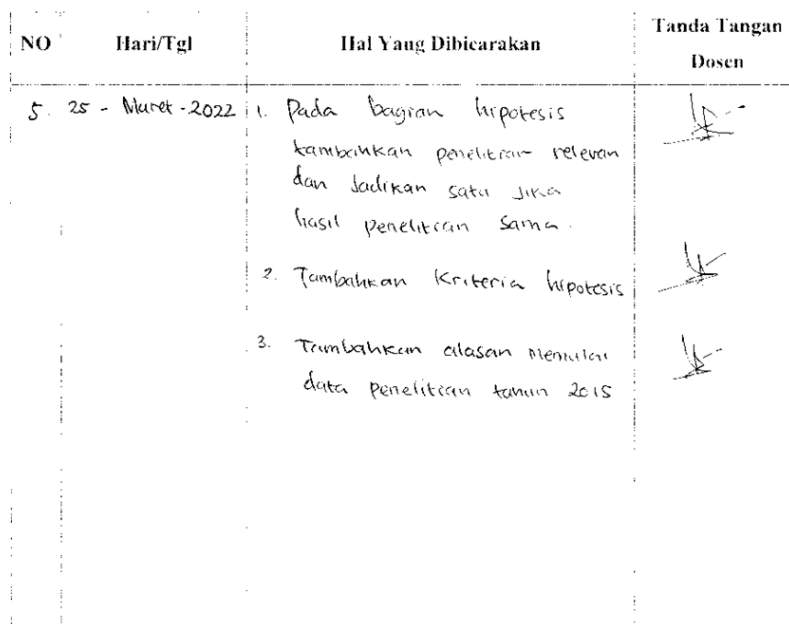 NO Hari/Tgl Hal Yang Dibicarakan Tanda Tangan
Dosen
5. 25 - Maret - 2022 1. Pada bagian hipotesis
tambahkan penelitian relevan
dan Jadikan satu Jika
hasil penelitian sama.
2. Tambahkan Kriteria hipotesis
3. Tambahkan alasan Memulai
data penelitian tahun 2015